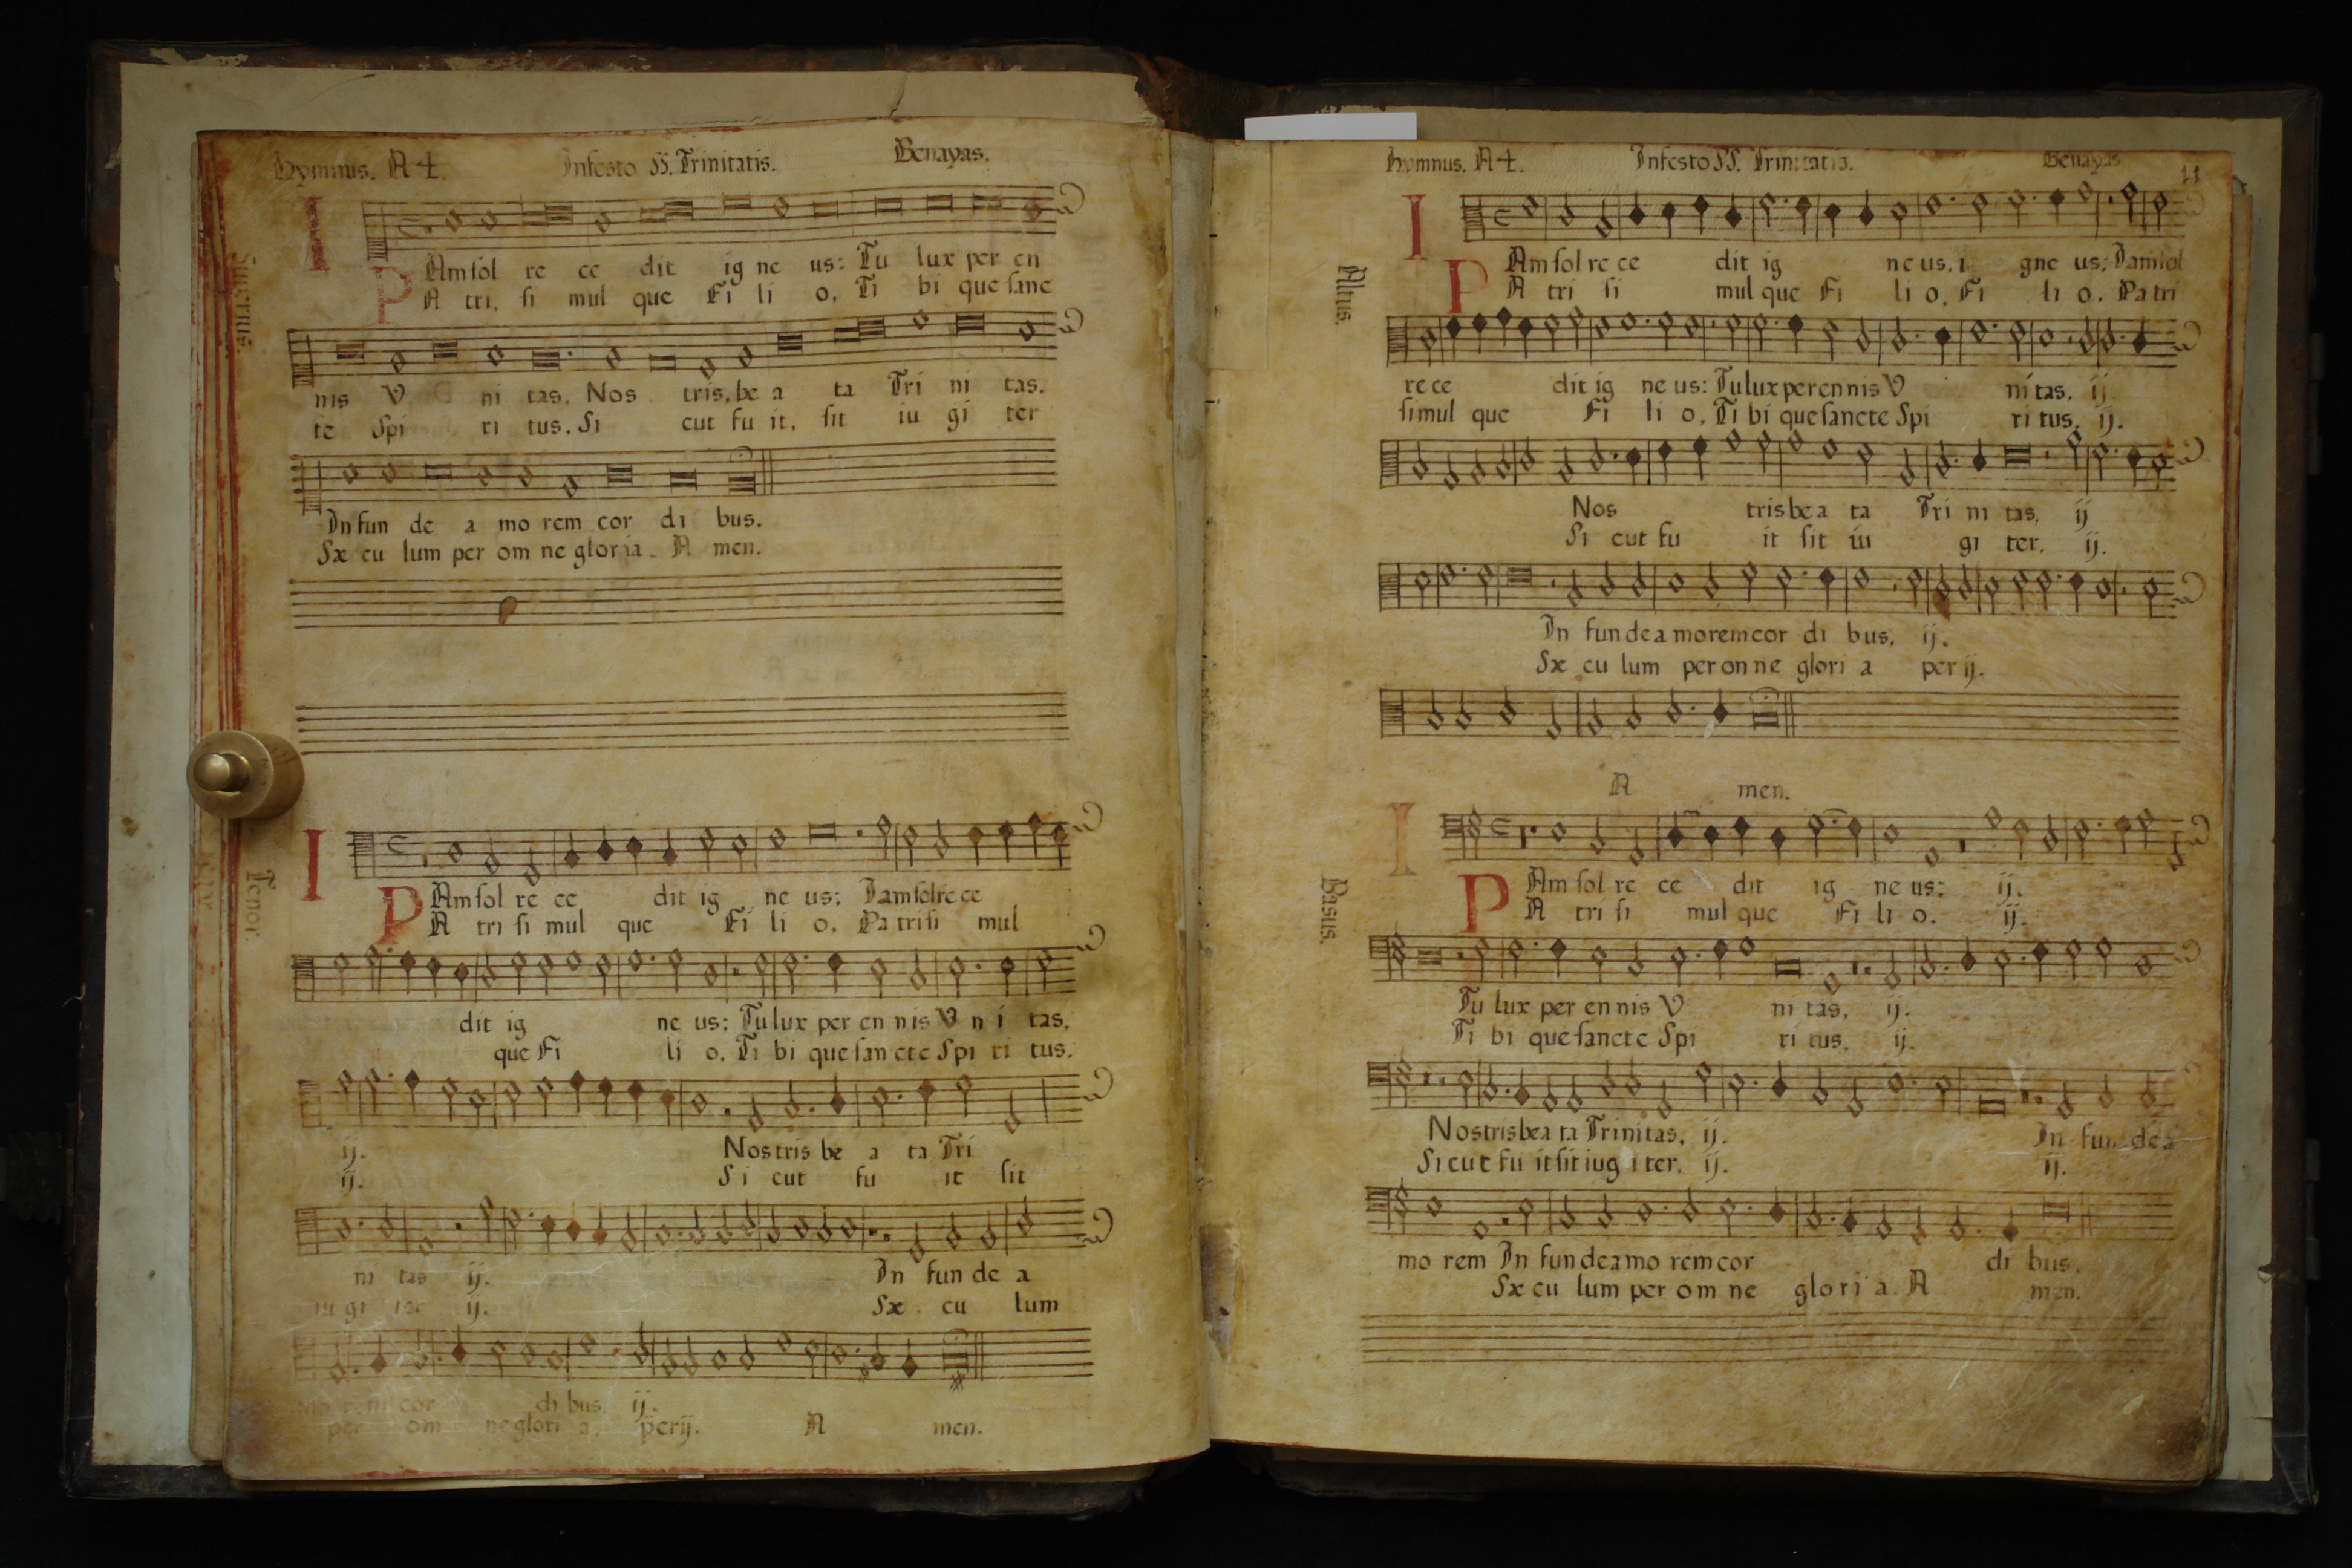 Hymnus. A 4. In festo SS. Trinitatis. Benayas.
Superius.
I Am sol re ce dit ig ne us: Tu lux per en
P A tri, si mul que Fi li o, Ti bi que sanc
nis V ni tas, Nos tris, be a ta Tri ni tas.
te Spi ri tus, Si cut fu it, sit iu gi ter
In fun de a mo rem cor di bus.
Sæ cu lum per om ne gloria. A men.
Tenor.
I Am sol re ce dit ig ne us; Iam sol re ce
P A tri si mul que Fi li o, Pa tri si mul
dit ig ne us; Tu lux per en nis V n i tas,
que Fi li o, Ti bi que san cte Spi ri tus.
ij. Nos tris be a ta Tri
ij. Si cut fu it sit
ni tas ij. In fun de a
iu gi ter ij. Sæ cu lum
mo rem cor di bus, ij.
per om ne glori a, per ij. A men.
Hymnus. A 4. In festo SS. Trinitatis. Benayas
11
Altus.
I Am sol re ce dit ig ne us, i gne us; Iam sol
P A tri si mul que Fi li o, Fi li o, Pa tri
re ce dit ig ne us: Tu lux per en nis V ni tas, ij
simul que Fi li o, Ti bi que sancte Spi ri tus, ij.
Nos tris be a ta Tri ni tas, ij
Si cut fu it sit iu gi ter, ij.
In fun de a mo rem cor di bus, ij.
Sæ cu lum per on ne glori a per ij.
A men.
Basus.
I Am sol re ce dit ig ne us: ij.
P A tri si mul que Fi li o. ij.
Tu lux per en nis V ni tas, ij.
Ti bi que sancte Spi ri tus, ij.
Nos tris be a ta Trinitas, ij. In fun de a
Si cut fu it sit iug i ter, ij. ij.
mo rem In fun de a mo rem cor di bus.
Sæ cu lum per om ne glo ri a A men.